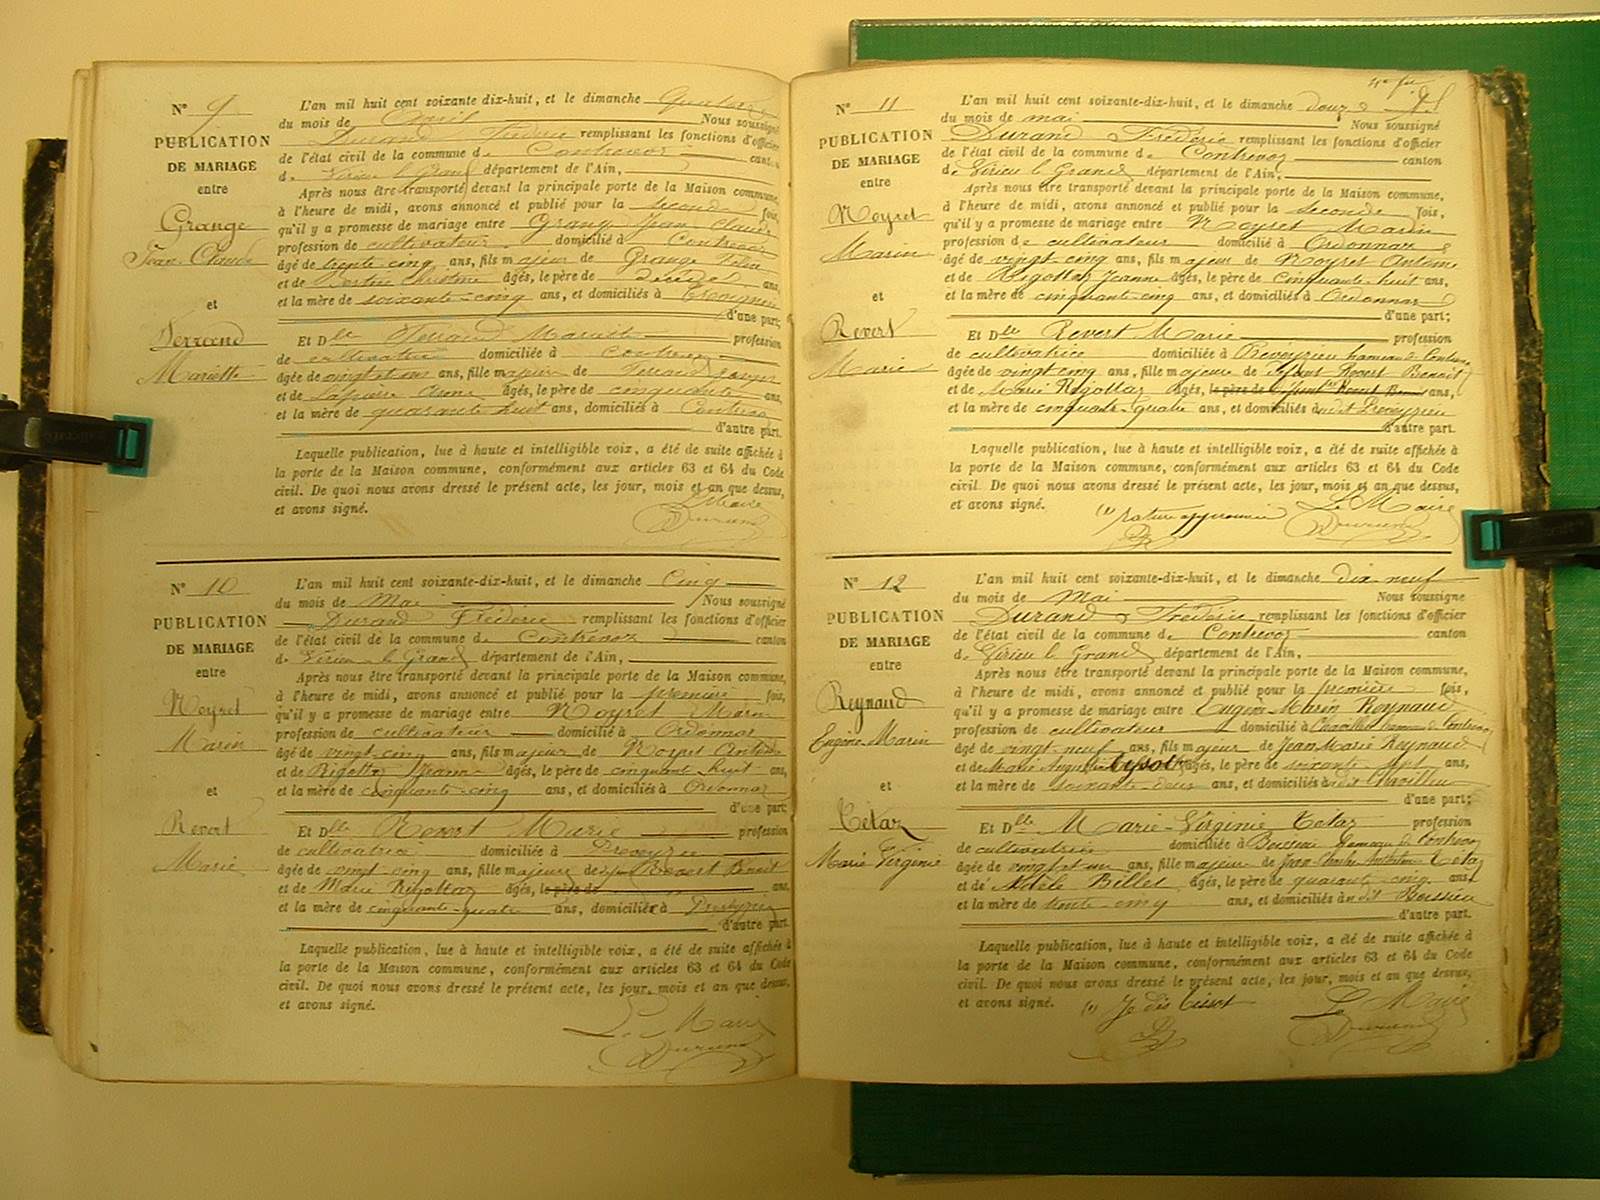 N° 9
PUBLICATION
DE MARIAGE
entre
Grange
Jean Claude
et
Ferrand
Mariette
L'an mil huit cent soixante dix-huit, et le dimanche Quatorze
du mois de Avril Nous soussigné
Durand Frédéric remplissant les fonctions d'officier
de l'état civil de la commune de Contrevoz canton
de Virieu le Grand département de l'Ain,
Après nous être transporté devant la principale porte de la Maison commune,
à l'heure de midi, avons annoncé et publié pour la seconde fois,
qu'il y a promesse de mariage entre Grange Jean Claude
profession de cultivateur domicilié à Contrevoz
âgé de trente cinq ans, fils majeur de Grange
et de Christine âgés, le père de décédé ans,
et la mère de soixante-cinq ans, et domiciliés à
d'une part;
Et Dlle Ferrand Mariette profession
de cultivatrice domiciliée à Contrevoz
âgée de vingt et un ans, fille majeure de Ferrand
et de Anne âgés, le père de cinquante ans,
et la mère de quarante huit ans, domiciliés à Contrevoz
d'autre part.
Laquelle publication, lue à haute et intelligible voix, a été de suite affichée à
la porte de la Maison commune, conformément aux articles 63 et 64 du Code
civil. De quoi nous avons dressé le présent acte, les jour, mois et an que dessus,
et avons signé.
Le Maire
Durand
N° 10
PUBLICATION
DE MARIAGE
entre
Noyret
Marin
et
Revert
Marie
L'an mil huit cent soixante-dix-huit, et le dimanche Cinq
du mois de Mai Nous soussigné
Durand Frédéric remplissant les fonctions d'officier
de l'état civil de la commune de Contrevoz canton
de Virieu le Grand département de l'Ain,
Après nous être transporté devant la principale porte de la Maison commune,
à l'heure de midi, avons annoncé et publié pour la première fois,
qu'il y a promesse de mariage entre Noyret Marin
profession de cultivateur domicilié à Ordonnaz
âgé de vingt-cinq ans, fils majeur de Noyret Antoine
et de Rigottaz Jeanne âgés, le père de cinquante huit ans,
et la mère de cinquante-cinq ans, et domiciliés à Ordonnaz
d'une part;
Et Dlle Revert Marie profession
de cultivatrice domiciliée à Preveyzieu
âgée de vingt-cinq ans, fille majeure de Revert Benoit
et de Marie Rigottaz âgés, le père de ans,
et la mère de cinquante-quatre ans, domiciliés à Preveyzieu
d'autre part.
Laquelle publication, lue à haute et intelligible voix, a été de suite affichée à
la porte de la Maison commune, conformément aux articles 63 et 64 du Code
civil. De quoi nous avons dressé le présent acte, les jour, mois et an que dessus,
et avons signé.
Le Maire
Durand
N° 11
PUBLICATION
DE MARIAGE
entre
Noyret
Marin
et
Revert
Marie
L'an mil huit cent soixante-dix-huit, et le dimanche douze
du mois de mai Nous soussigné
Durand Frédéric remplissant les fonctions d'officier
de l'état civil de la commune de Contrevoz canton
de Virieu le Grand département de l'Ain,
Après nous être transporté devant la principale porte de la Maison commune,
à l'heure de midi, avons annoncé et publié pour la seconde fois,
qu'il y a promesse de mariage entre Noyret Marin
profession de cultivateur domicilié à Ordonnaz
âgé de vingt cinq ans, fils majeur de Noyret Antoine
et de Rigottaz Jeanne âgés, le père de Cinquante huit ans,
et la mère de cinquante-cinq ans, et domiciliés à Ordonnaz
d'une part;
Et Dlle Revert Marie profession
de cultivatrice domiciliée à Preveyzieu hameau de Contrevoz
âgée de vingt cinq ans, fille majeure de Revert Benoit
et de Marie Rigottaz âgés, le père de ans,
et la mère de cinquante-quatre ans, et domiciliés à dit Preveyzieu
d'autre part.
Laquelle publication, lue à haute et intelligible voix, a été de suite affichée à
la porte de la Maison commune, conformément aux articles 63 et 64 du Code
civil. De quoi nous avons dressé le présent acte, les jour, mois et an que dessus,
et avons signé. (1) rature approuvée Le Maire
Durand
N° 12
PUBLICATION
DE MARIAGE
entre
Reynaud
Eugène-Marin
et
Tétaz
Marie Virginie
L'an mil huit cent soixante-dix-huit, et le dimanche dix-neuf
du mois de mai Nous soussigné
Durand Frédéric remplissant les fonctions d'officier
de l'état civil de la commune de Contrevoz canton
de Virieu le Grand département de l'Ain,
Après nous être transporté devant la principale porte de la Maison commune,
à l'heure de midi, avons annoncé et publié pour la première fois,
qu'il y a promesse de mariage entre Eugène-Marin Reynaud
profession de cultivateur domicilié à hameau de Contrevoz
âgé de vingt-neuf ans, fils majeur de Jean Marie Reynaud
et de Marie tissot âgés, le père de soixante-sept ans,
et la mère de soixante-deux ans, et domiciliés à dit
d'une part;
Et Dlle Marie-Virginie Tétaz profession
de cultivatrice domiciliée à Boissieu hameau de Contrevoz
âgée de vingt et un ans, fille majeure de Jean Tétaz
et de Adèle Billet âgés, le père de quarante-cinq ans,
et la mère de trente-cinq ans, et domiciliés à dit Boissieu
d'autre part.
Laquelle publication, lue à haute et intelligible voix, a été de suite affichée à
la porte de la Maison commune, conformément aux articles 63 et 64 du Code
civil. De quoi nous avons dressé le présent acte, les jour, mois et an que dessus,
et avons signé. (1) Je dis tissot Le Maire
Durand